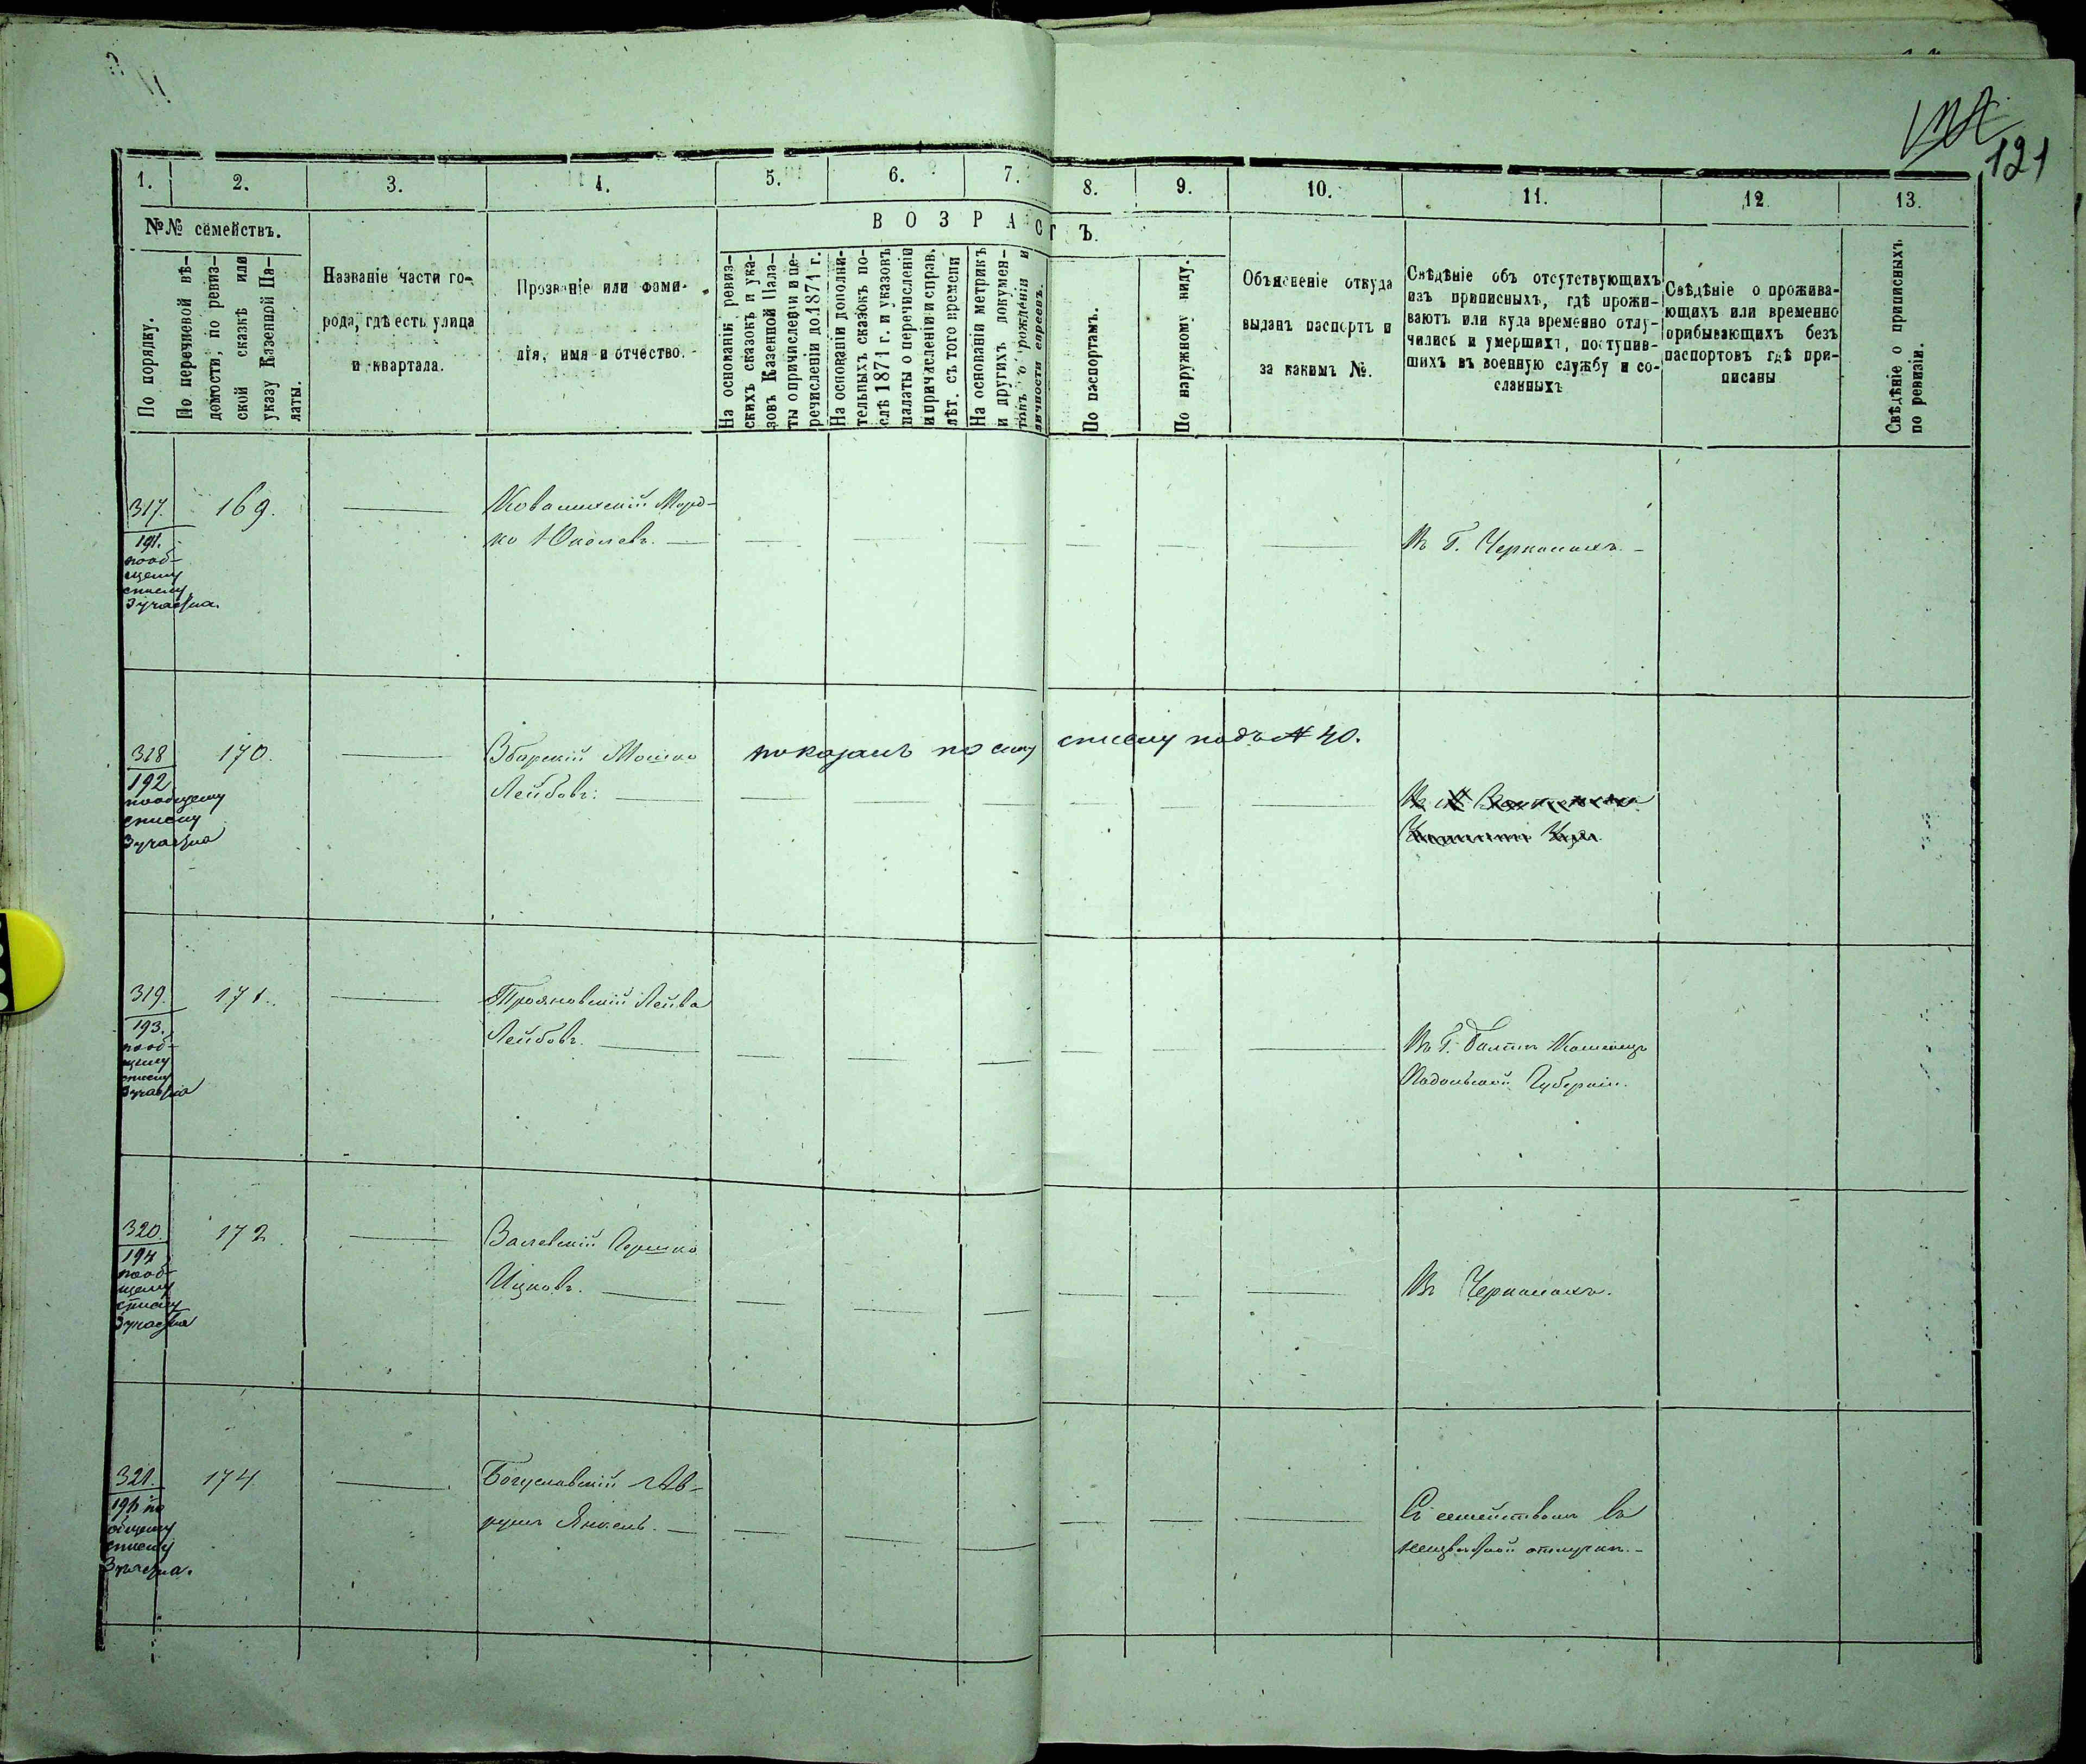 121
1. 2. 3. 4. 5. 6. 7. 8. 9. 10. 11. 12 13.
№№ семействъ.
По порядку.
По перечневой вѣ-
домости, по ревиз-
ской сказкѣ или
указу Казенной Па-
латы.
Названіе части го-
рода, гдѣ есть улица
и квартала.
Прозваніе или фами-
лія, имя и отчество.
ВОЗРАСТЪ.
На основаніи ревиз-
скихъ сказокъ и ука-
зовъ Казенной Пала-
ты о причисленіи и пе-
речисленіи до 1871 г.
На основаніи дополни-
тельныхъ сказокъ по-
слѣ 1871 г. и указовъ
палаты о перечисленіи
и причисленіи и справ.
лѣт. съ того времени
На основаніи метрикъ
и другихъ докумен-
товъ о рожденіи и
личности евреевъ.
По паспортамъ.
По наружному виду.
Объясненіе откуда
выданъ паспортъ и
за какимъ №.
Свѣдѣніе объ отсутствующихъ
изъ приписныхъ, гдѣ прожи-
ваютъ или куда временно отлу-
чились и умершихъ, поступив-
шихъ въ военную службу и со-
сланныхъ
Свѣдѣніе о прожива-
ющихъ или временно
прибывающихъ безъ
паспортовъ гдѣ при-
писаны
Свѣдѣніе о приписныхъ
по ревизіи.
317. 169. Мордко
191.
по об-
щему
списку
3 участка.
Въ Г. Черкасахъ.
318 170. Збарскій Мошко
Лейбовъ.
показанъ по сему списку подъ № 40.
192
по общему
списку
3 участка
319. 171. Трояновскій Лейва
Лейбовъ.
193.
по об-
щему
списку
3 участка
Въ Г. Балтѣ
Подольской Губерніи.
320. 172 Заславскій Гершко
Ицковъ.
194
по об-
щему
списку
3 участка
Въ Черкасахъ.
321. 174 Богуславскій Ав-
румъ Янкель.
по
общему
списку
3 участка.
Съ семействомъ въ
неизвѣстной отлучкѣ.